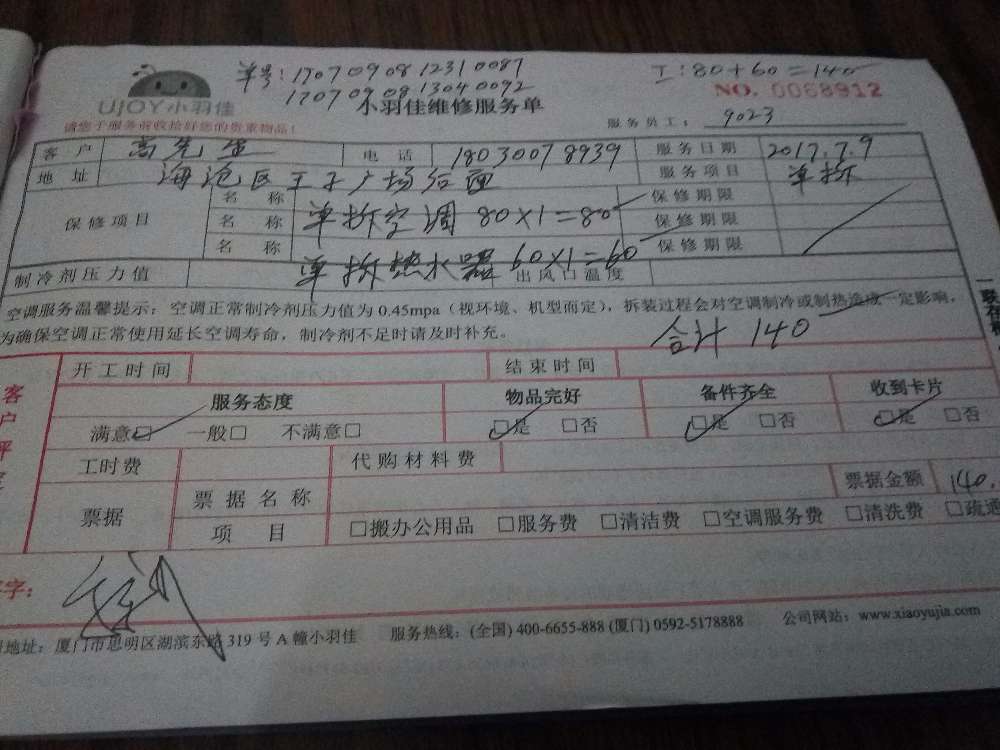 单号：1707090812310087
1707090813040092
工：80+60=140
UJOY小羽佳
NO. 0068912
小羽佳维修服务单
请您于服务前收拾好您的贵重物品！
服务员工： 9023
客户 高先生 电话 18030078939 服务日期 2017.7.9
地址 海沧区王子广场后面 服务项目 单拆
保修项目 名称 单拆空调 80×1=80 保修期限
名称 保修期限
名称 单拆热水器 60×1=60 保修期限
制冷剂压力值 出风口温度
空调服务温馨提示：空调正常制冷剂压力值为0.45mpa（视环境、机型而定），拆装过程会对空调制冷或制热造成一定影响，
为确保空调正常使用延长空调寿命，制冷剂不足时请及时补充。
合计 140
开工时间 结束时间
客户评
服务态度 物品完好 备件齐全 收到卡片
满意□ 一般□ 不满意□ □是 □否 □是 □否 □是 □否
工时费 代购材料费
票据 票据名称 票据金额 140.
项目 □搬办公用品 □服务费 □清洁费 □空调服务费 □清洗费 □疏通
字：
地址：厦门市思明区湖滨东路319号A幢小羽佳 服务热线：(全国) 400-6655-888 (厦门) 0592-5178888 公司网站：www.xiaoyujia.com